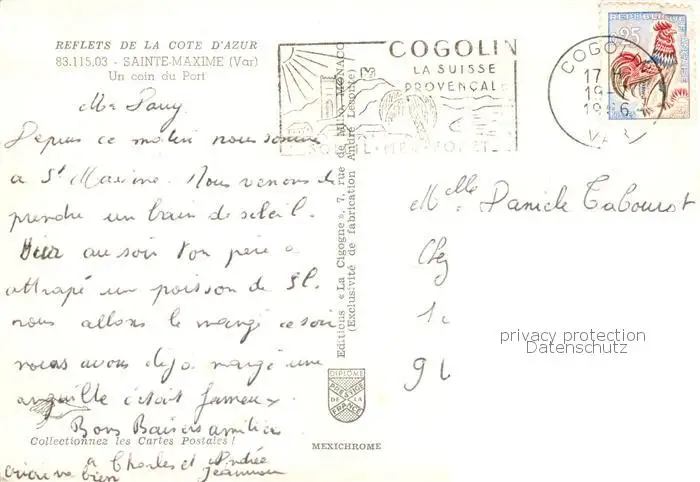 REFLETS DE LA COTE D'AZUR
83.115.03 - SAINTE-MAXIME (Var)
Un coin du Port
Depuis ce matin nous sommes
a St Maxime. Nous venons de
prendre un bain de soleil.
Hier au soir ton père a
attrapé un poisson de 3l.
nous allons le mangé ce soir
nous avons déja mangé une
anguille c'était fameux
Bons Baisers amitiés
a Charles et Andrée
bien Jeannou
Collectionnez les Cartes Postales !
Editions « La Cigogne », 7, rue de Millo, MONACO
(Exclusivité de fabrication André Leconte)
DIPLOME
PRESTIGE
DE LA
FRANCE
MEXICHROME
COGOLIN
LA SUISSE
PROVENÇALE
SOLEIL-MER-FORET
COGOLIN
17 H
19 -
VAR
REPUBLIQUE FRANÇAISE
0,25
Melle Daniele Tabourot
Chez
privacy protection
Datenschutz